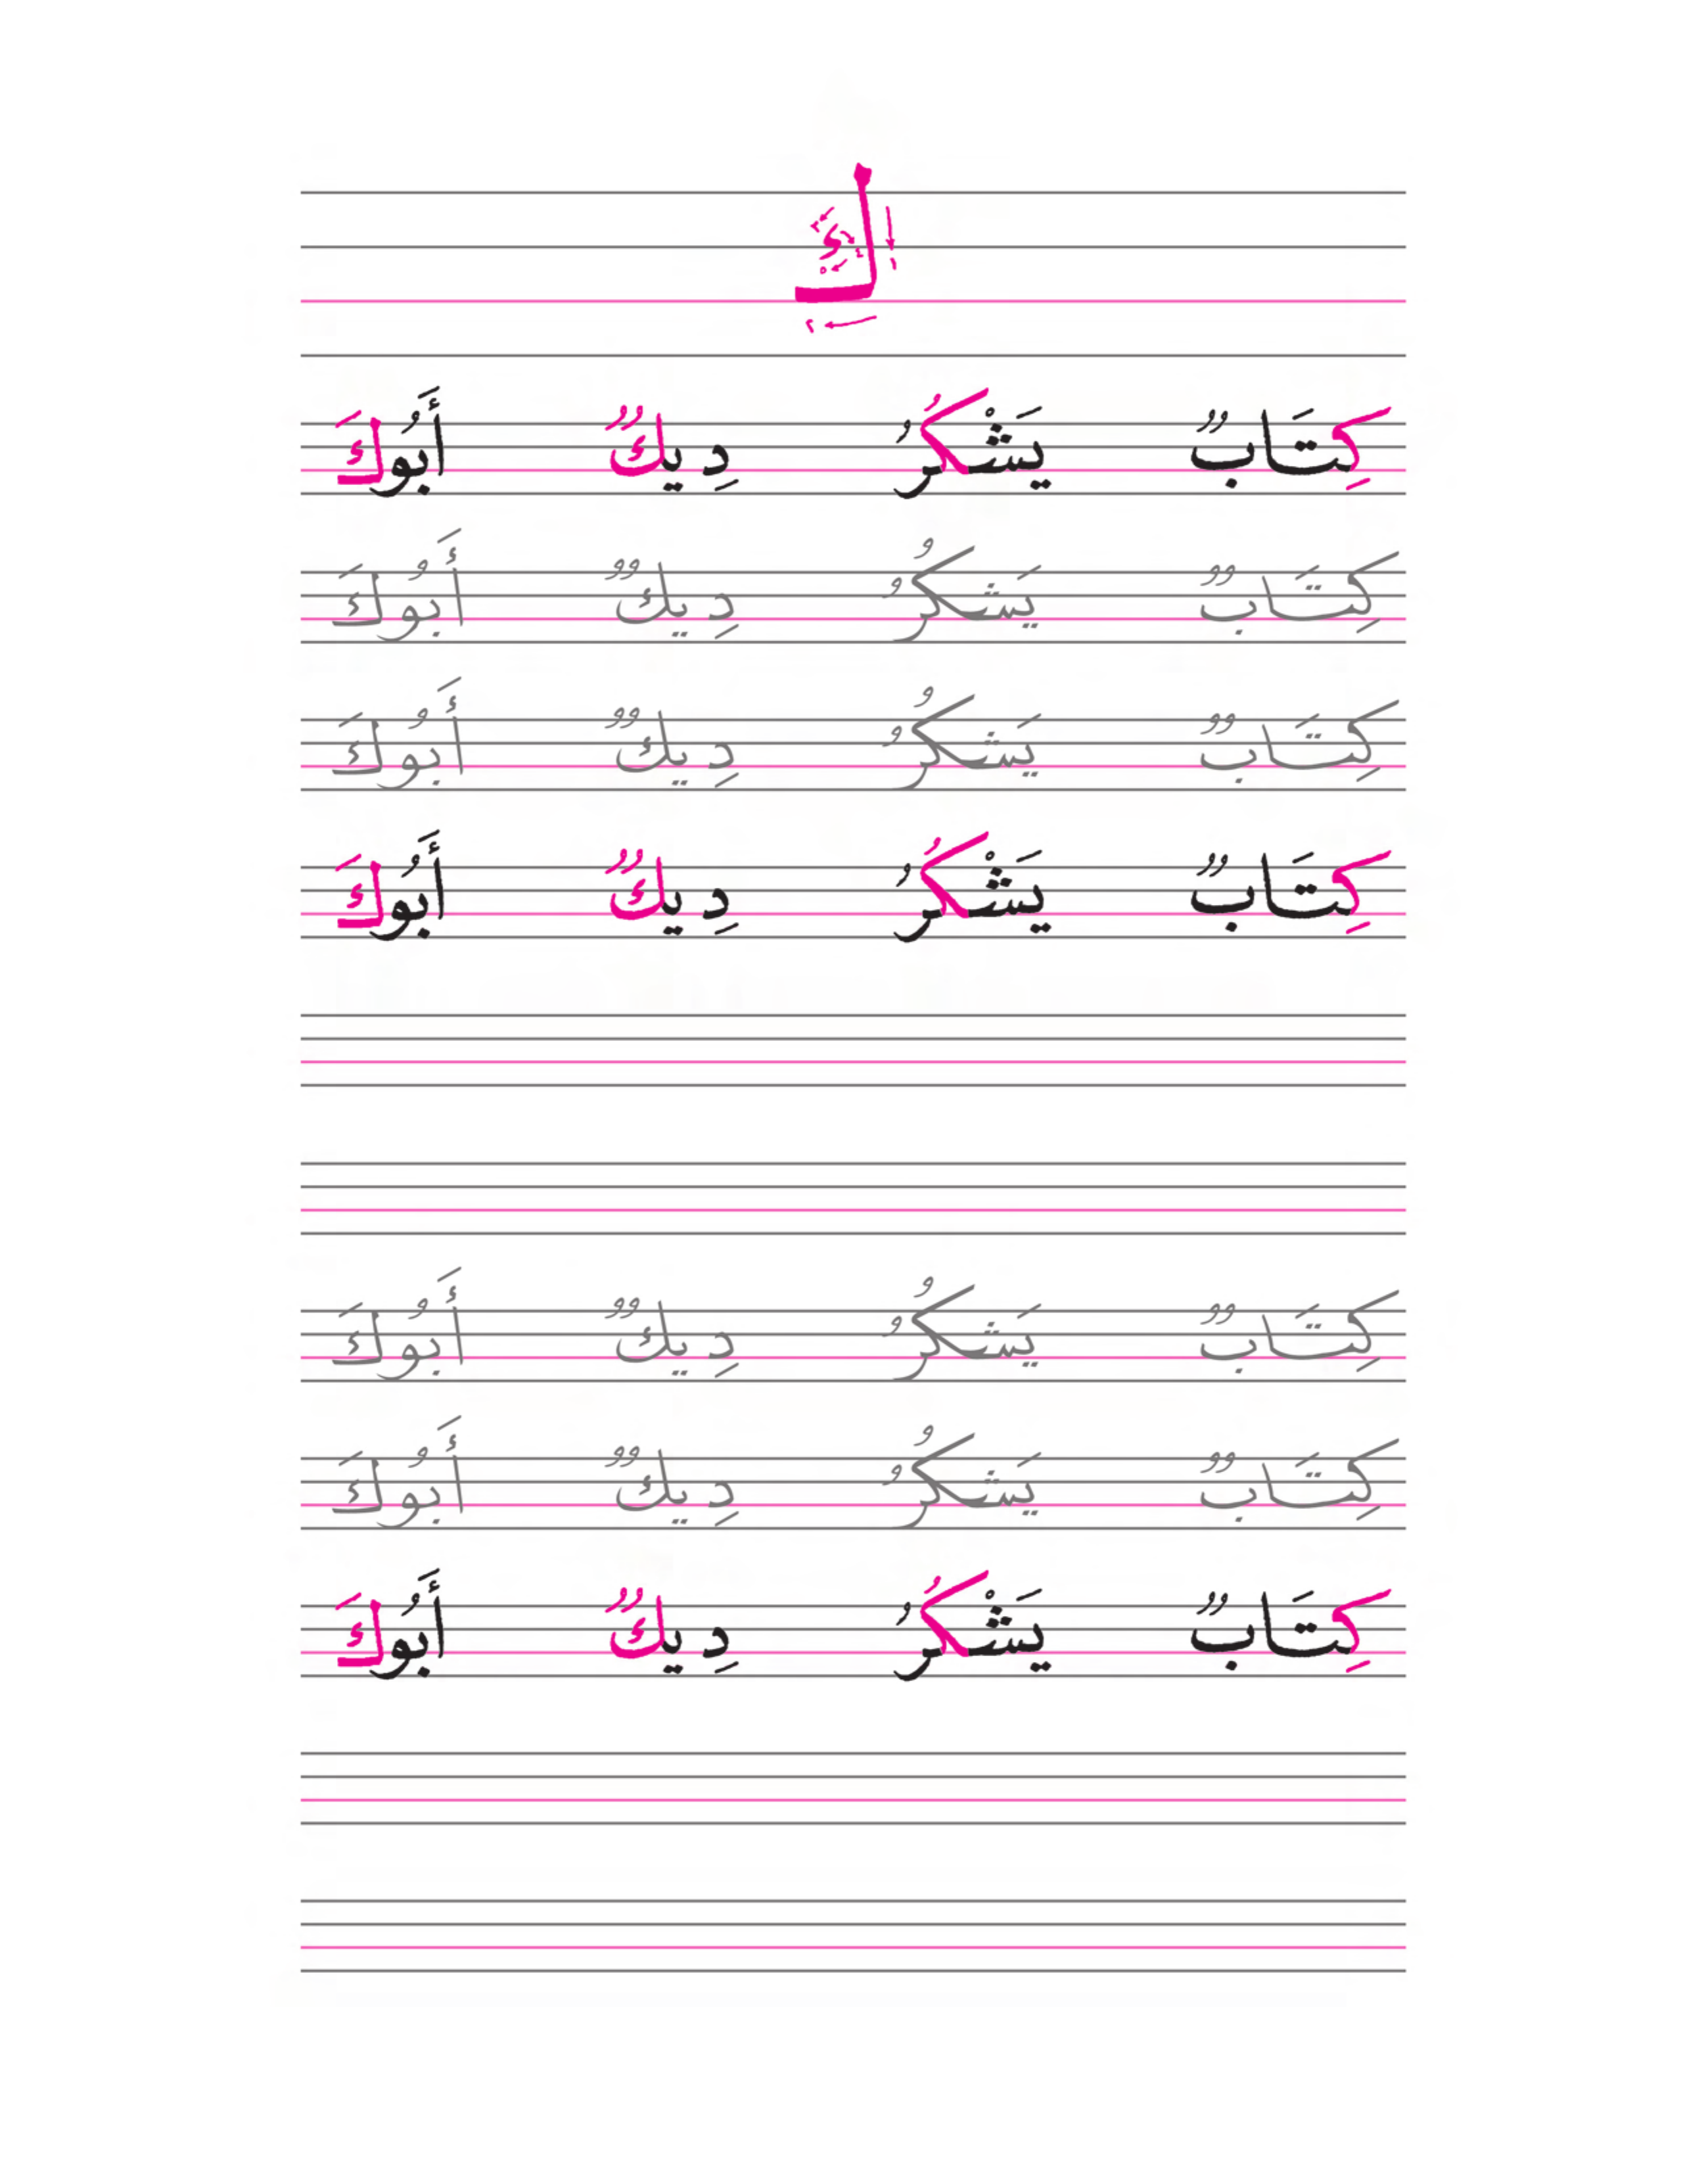 ك
كِتَابٌ يَشْكُرُ دِيكٌ أَبُوكَ
كِتَابٌ يَشكُرُ دِيكٌ أَبُوكَ
كِتَابٌ يَشكُرُ دِيكٌ أَبُوكَ
كِتَابٌ يَشْكُرُ دِيكٌ أَبُوكَ
كِتَابٌ يَشكُرُ دِيكٌ أَبُوكَ
كِتَابٌ يَشكُرُ دِيكٌ أَبُوكَ
كِتَابٌ يَشْكُرُ دِيكٌ أَبُوكَ